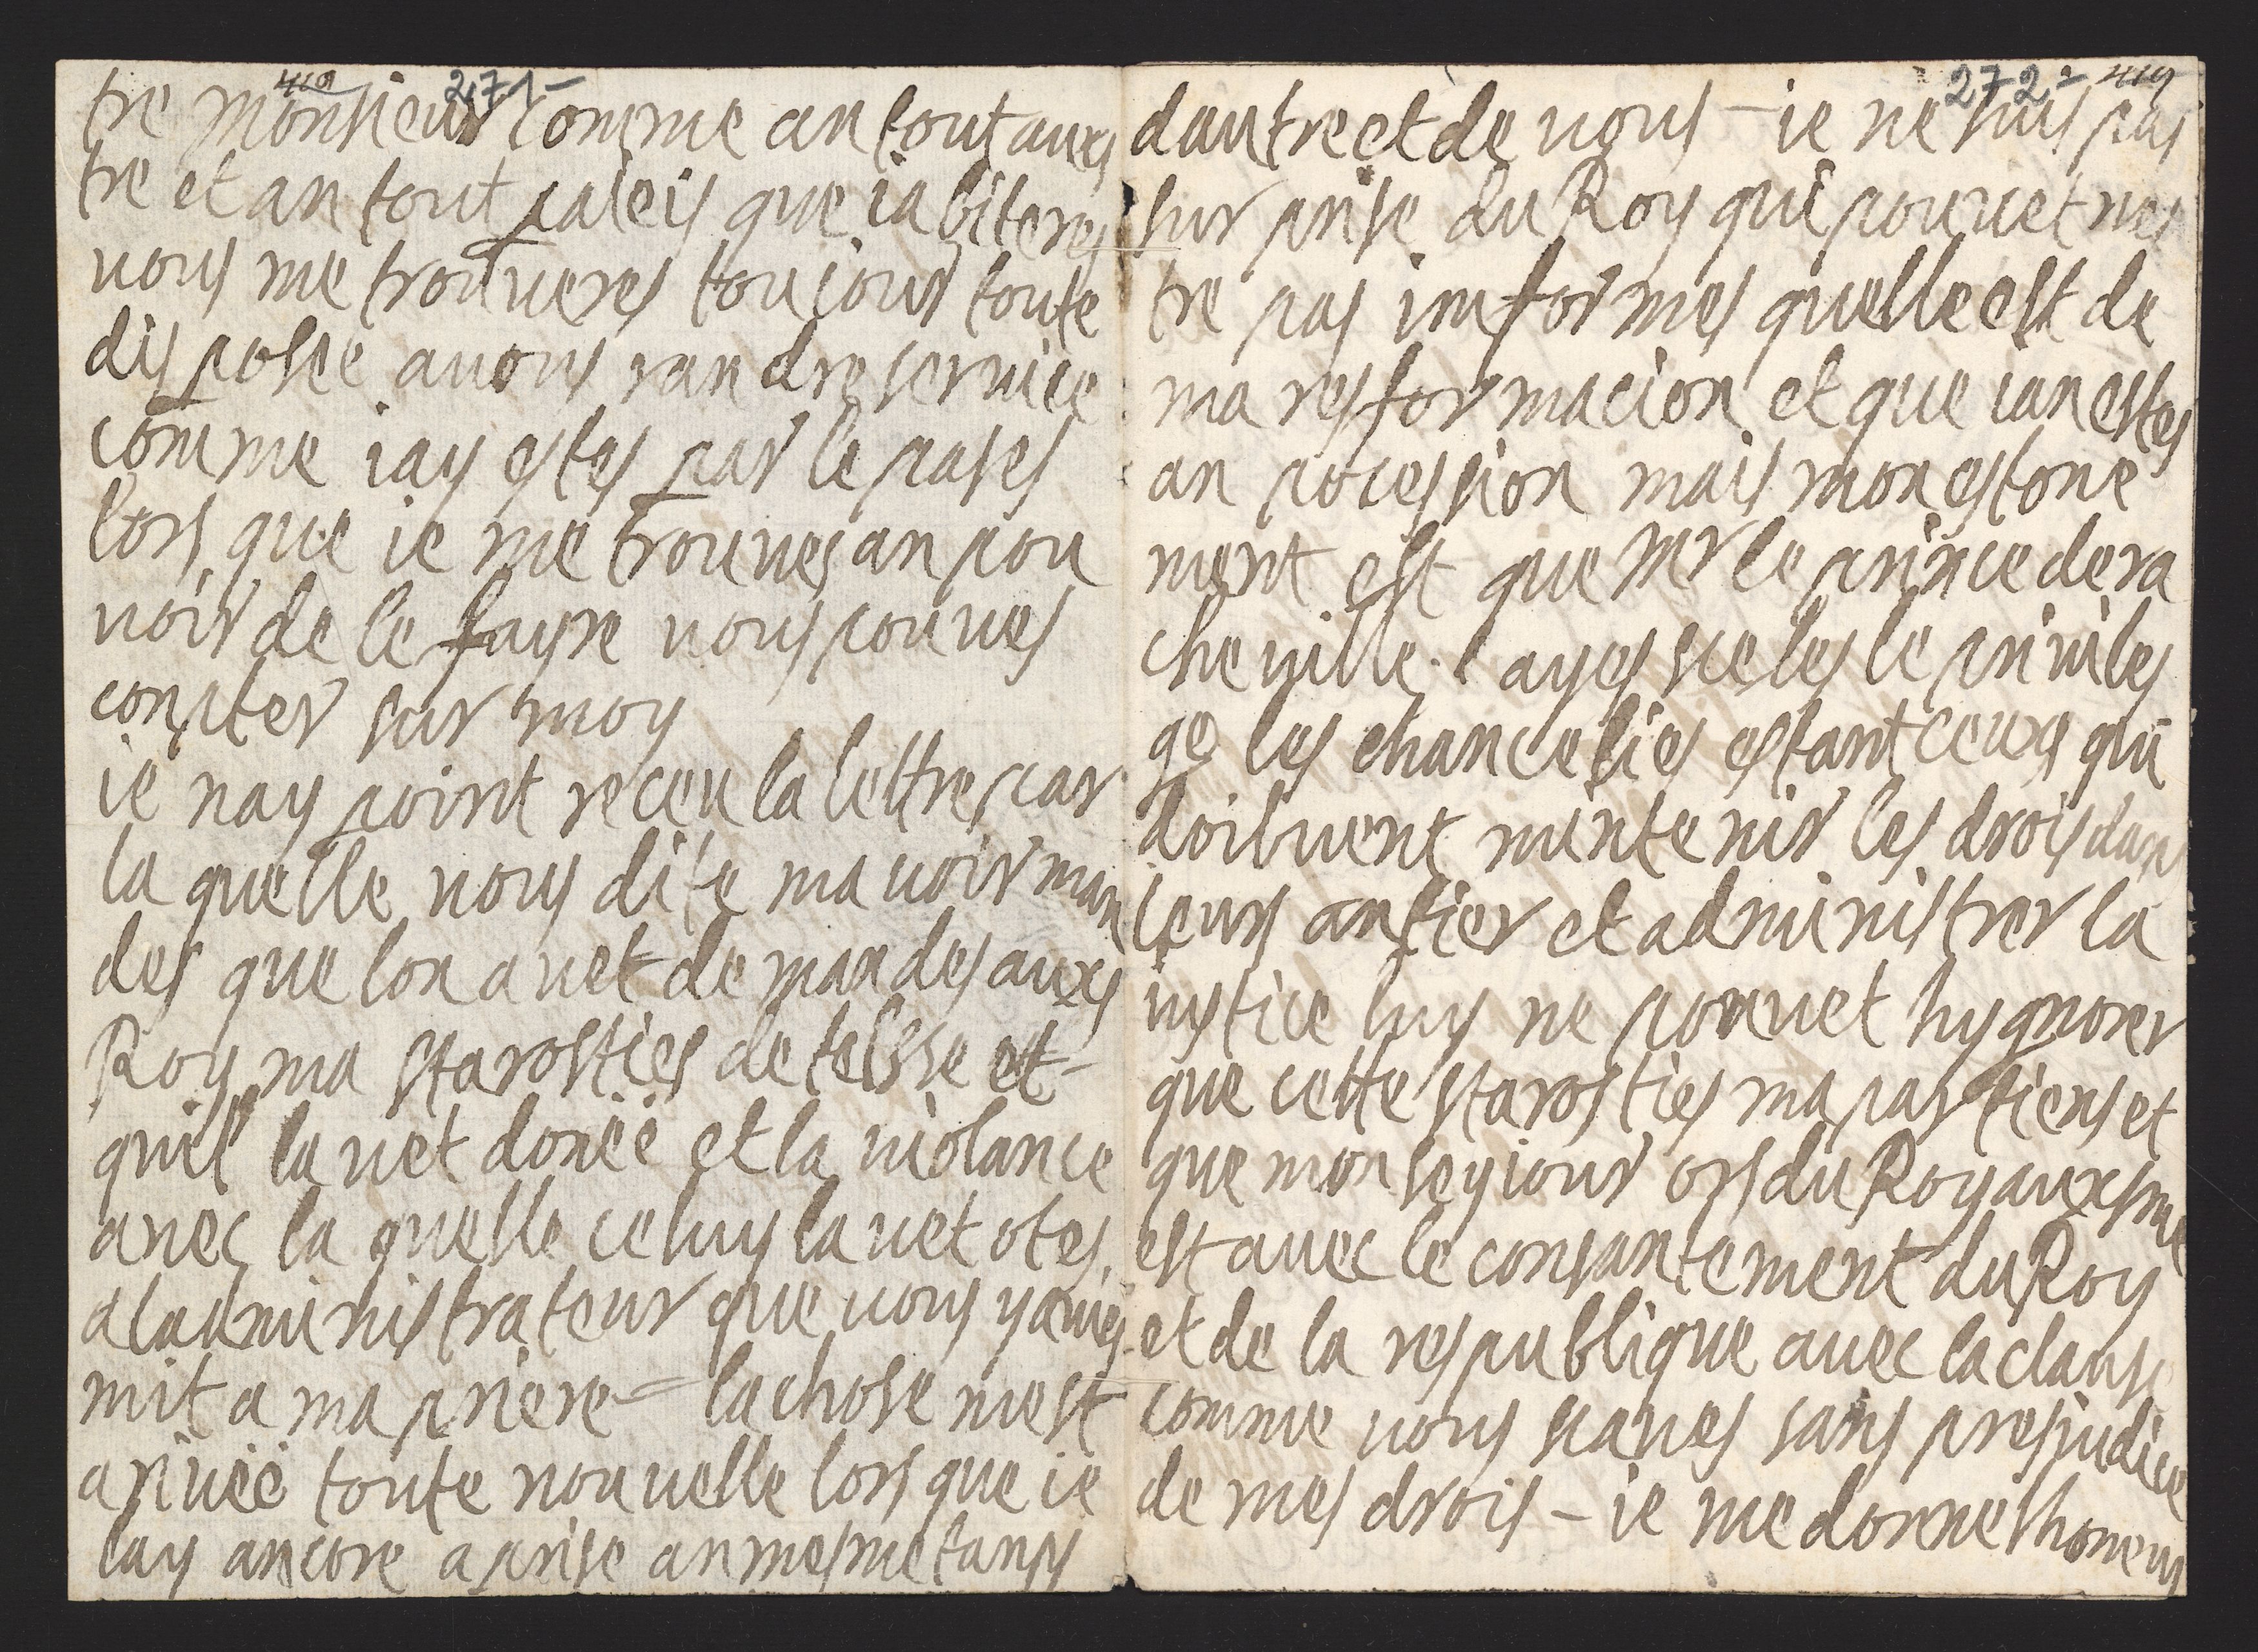 271-
tre monsieur comme an tout auxs
tre et an tout païeis que iabiteres
uous me trouueres touiour toute
disposée auous randre seruice
comme iay estes par le pases
lors que ie me trouues an pou
uoir de le fayre uous pouues
conpter sur moy
ie nay point receu la lettre par
la quelle uous dite ma uoir man
des que lon auet de mandes auxs
Roy ma starosties de telsse et-
quil la uet donëë et la uiolance
auec la quelle celuy la uet otes
a ladministrateur que uous yauies
mit a ma priere = la chose mest
ariuëë toute nouuelle lors que ie
lay ancore aprise an mesme tanps
272- 419
dautre et de uous - ie ne suis pas
sur prise du Roy qui pouuet nes
tre pas imformes quelle est de
ma resformacion et que ian estes
an pocession mais mon estone
ment est que Mr le prince dera
cheuille layes sceles le priuiles
ge les chancelies estant ceuxs qui
doiluent mintenir les drois dans
leurs antier et administrer la
iustice luy ne pouuet hygnorer
que cette starosties ma partiens et
que mon seyiour ors du Royauxsme
est auec le consantement du Roy
et de la respublique auec la clause
comme uous scaues sans presiudice
de mes drois - ie me donne lhoneur